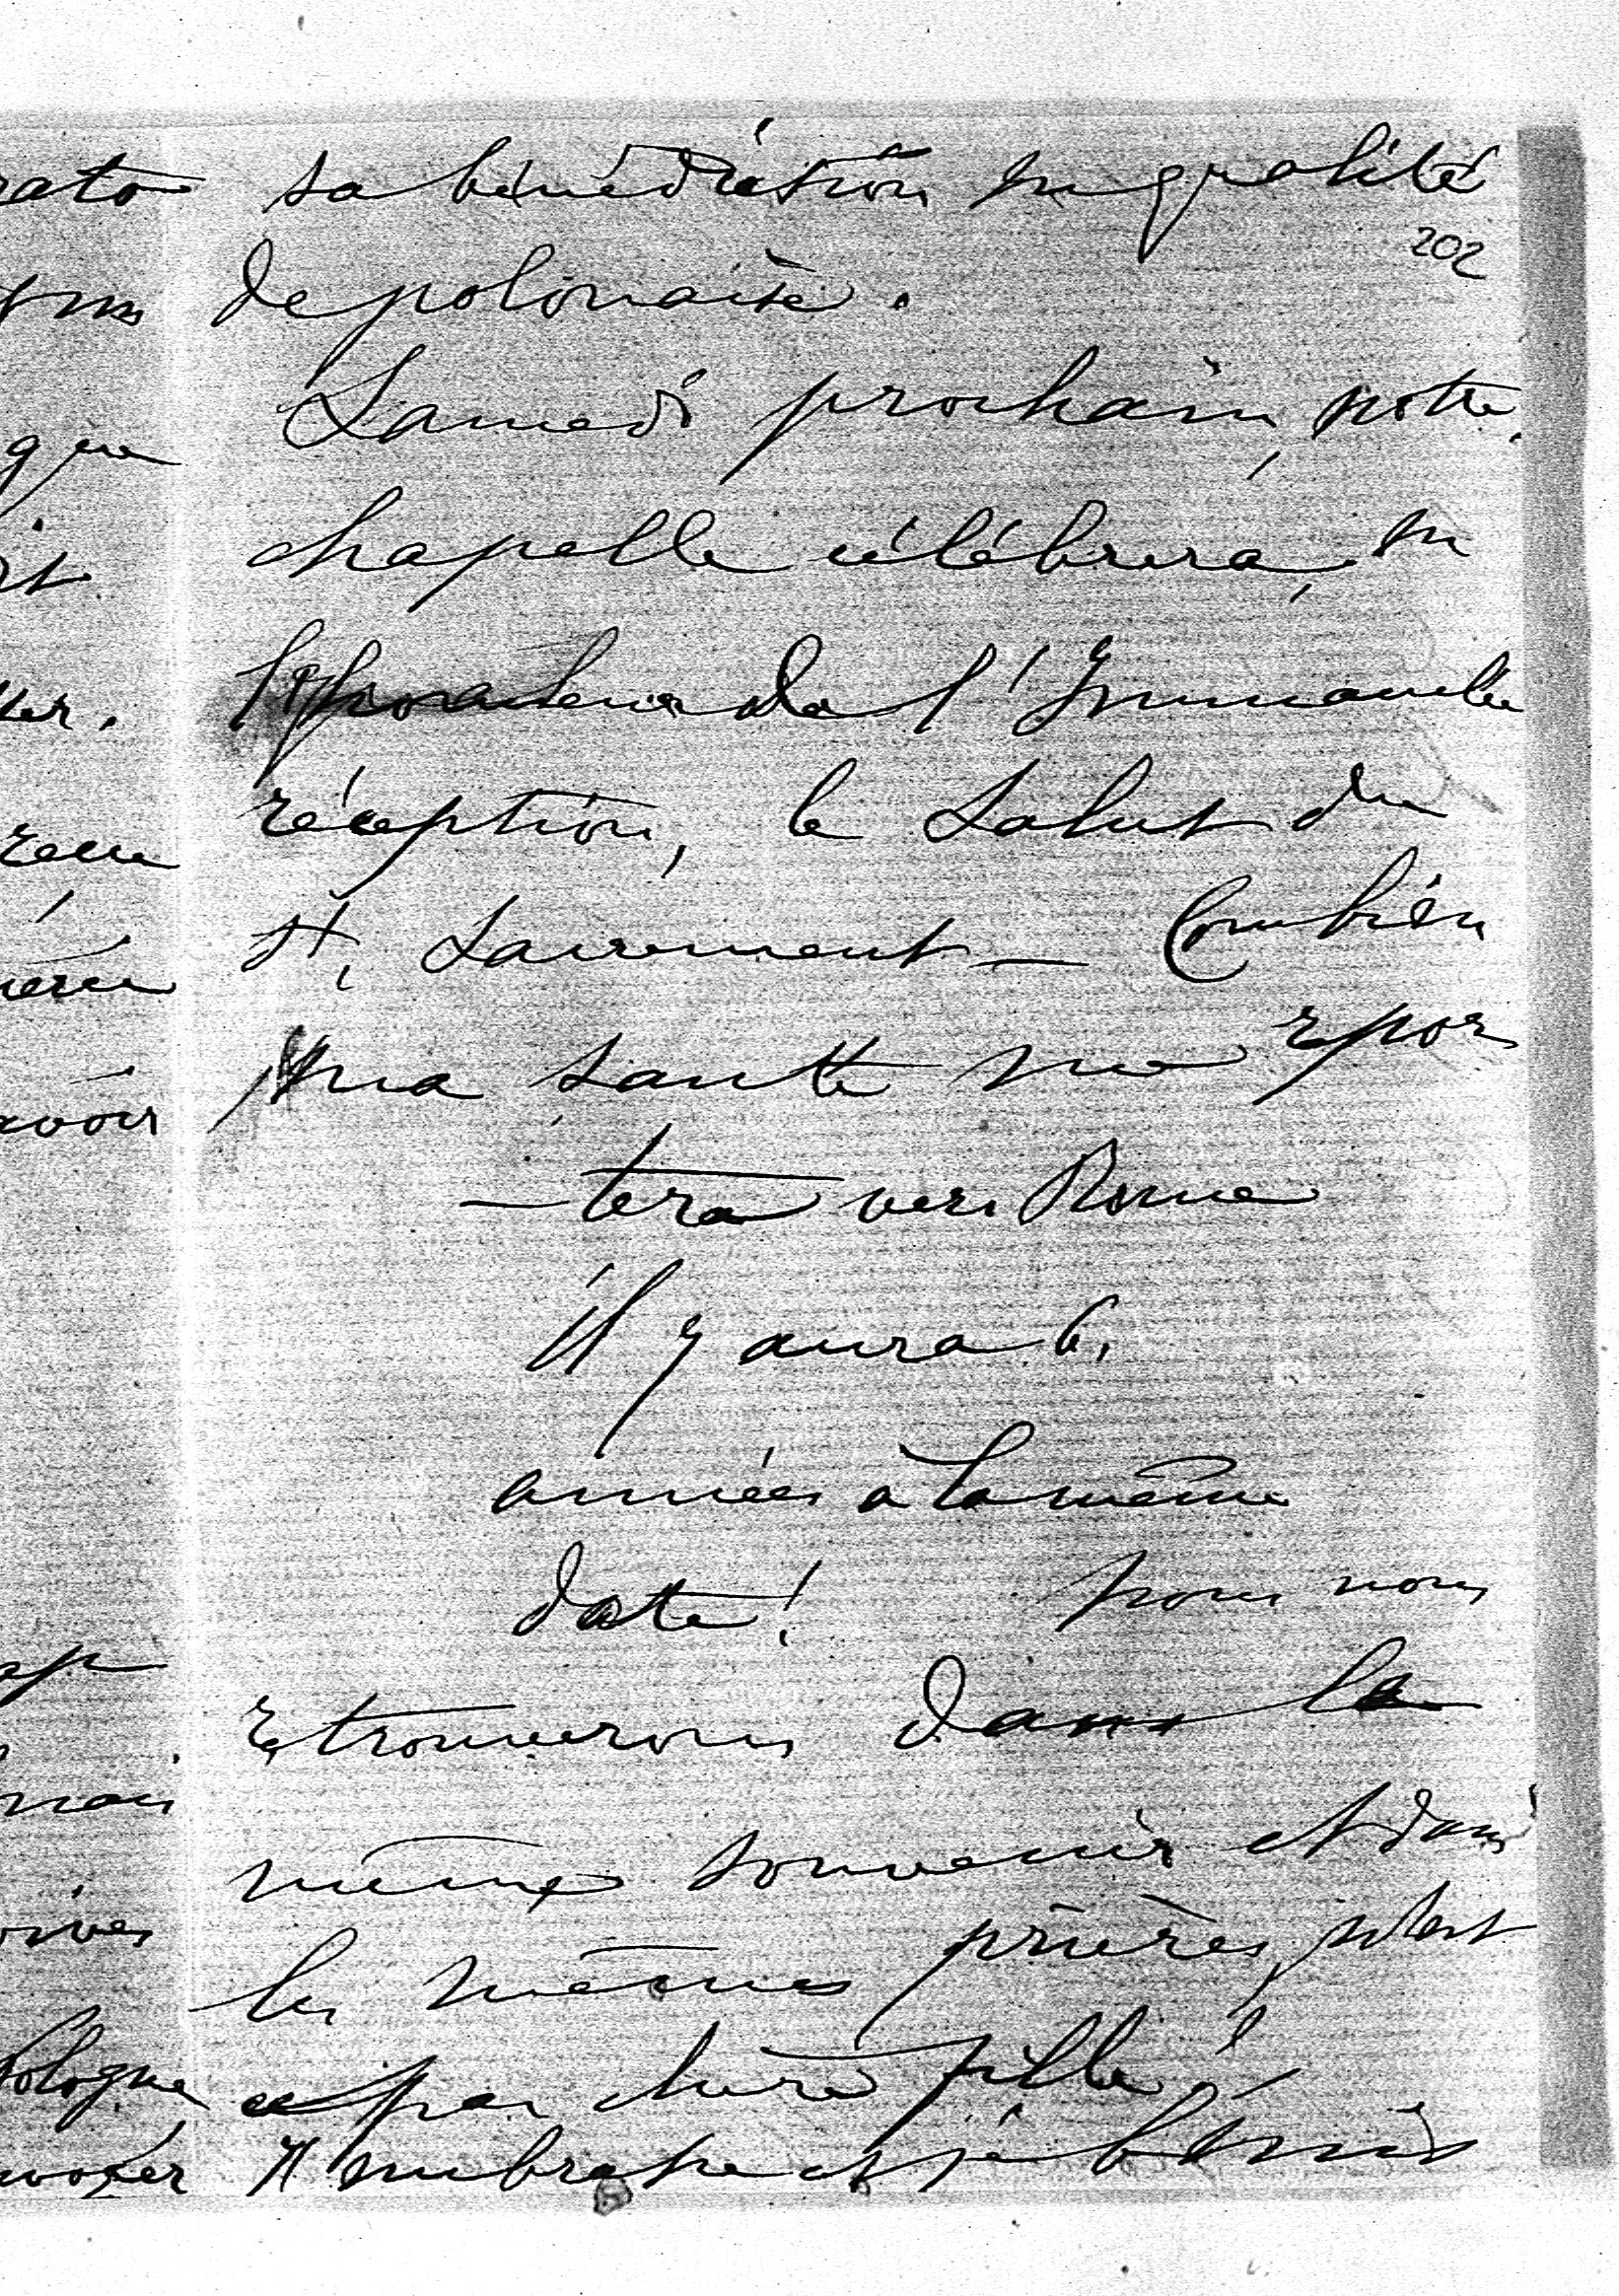 sa bénédiction en qualité
202
de polonaise.
Samedi prochain, notre
chapelle célébrera, en
de l'Immaculée
réception, le Salut du
St, Sacrement — Combien
ma santé me repor
— tera vers Rome
il y aura 6,
années à la même
date! nous nous
retrouverons dans le
même souvenir et dans
les mêmes prières, n'est
ce pas chère fille
Je embrasse et je bénis
rato
que
ter.
avoir
nous
Pologne